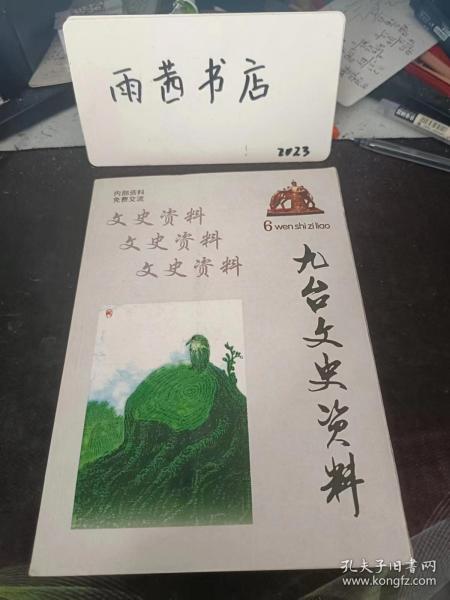 雨茜书店
2023
内部资料
免费交流
6 wen shi zi liao
文史资料
文史资料
文史资料
九台文史资料
孔夫子旧书网
www.kongfz.com